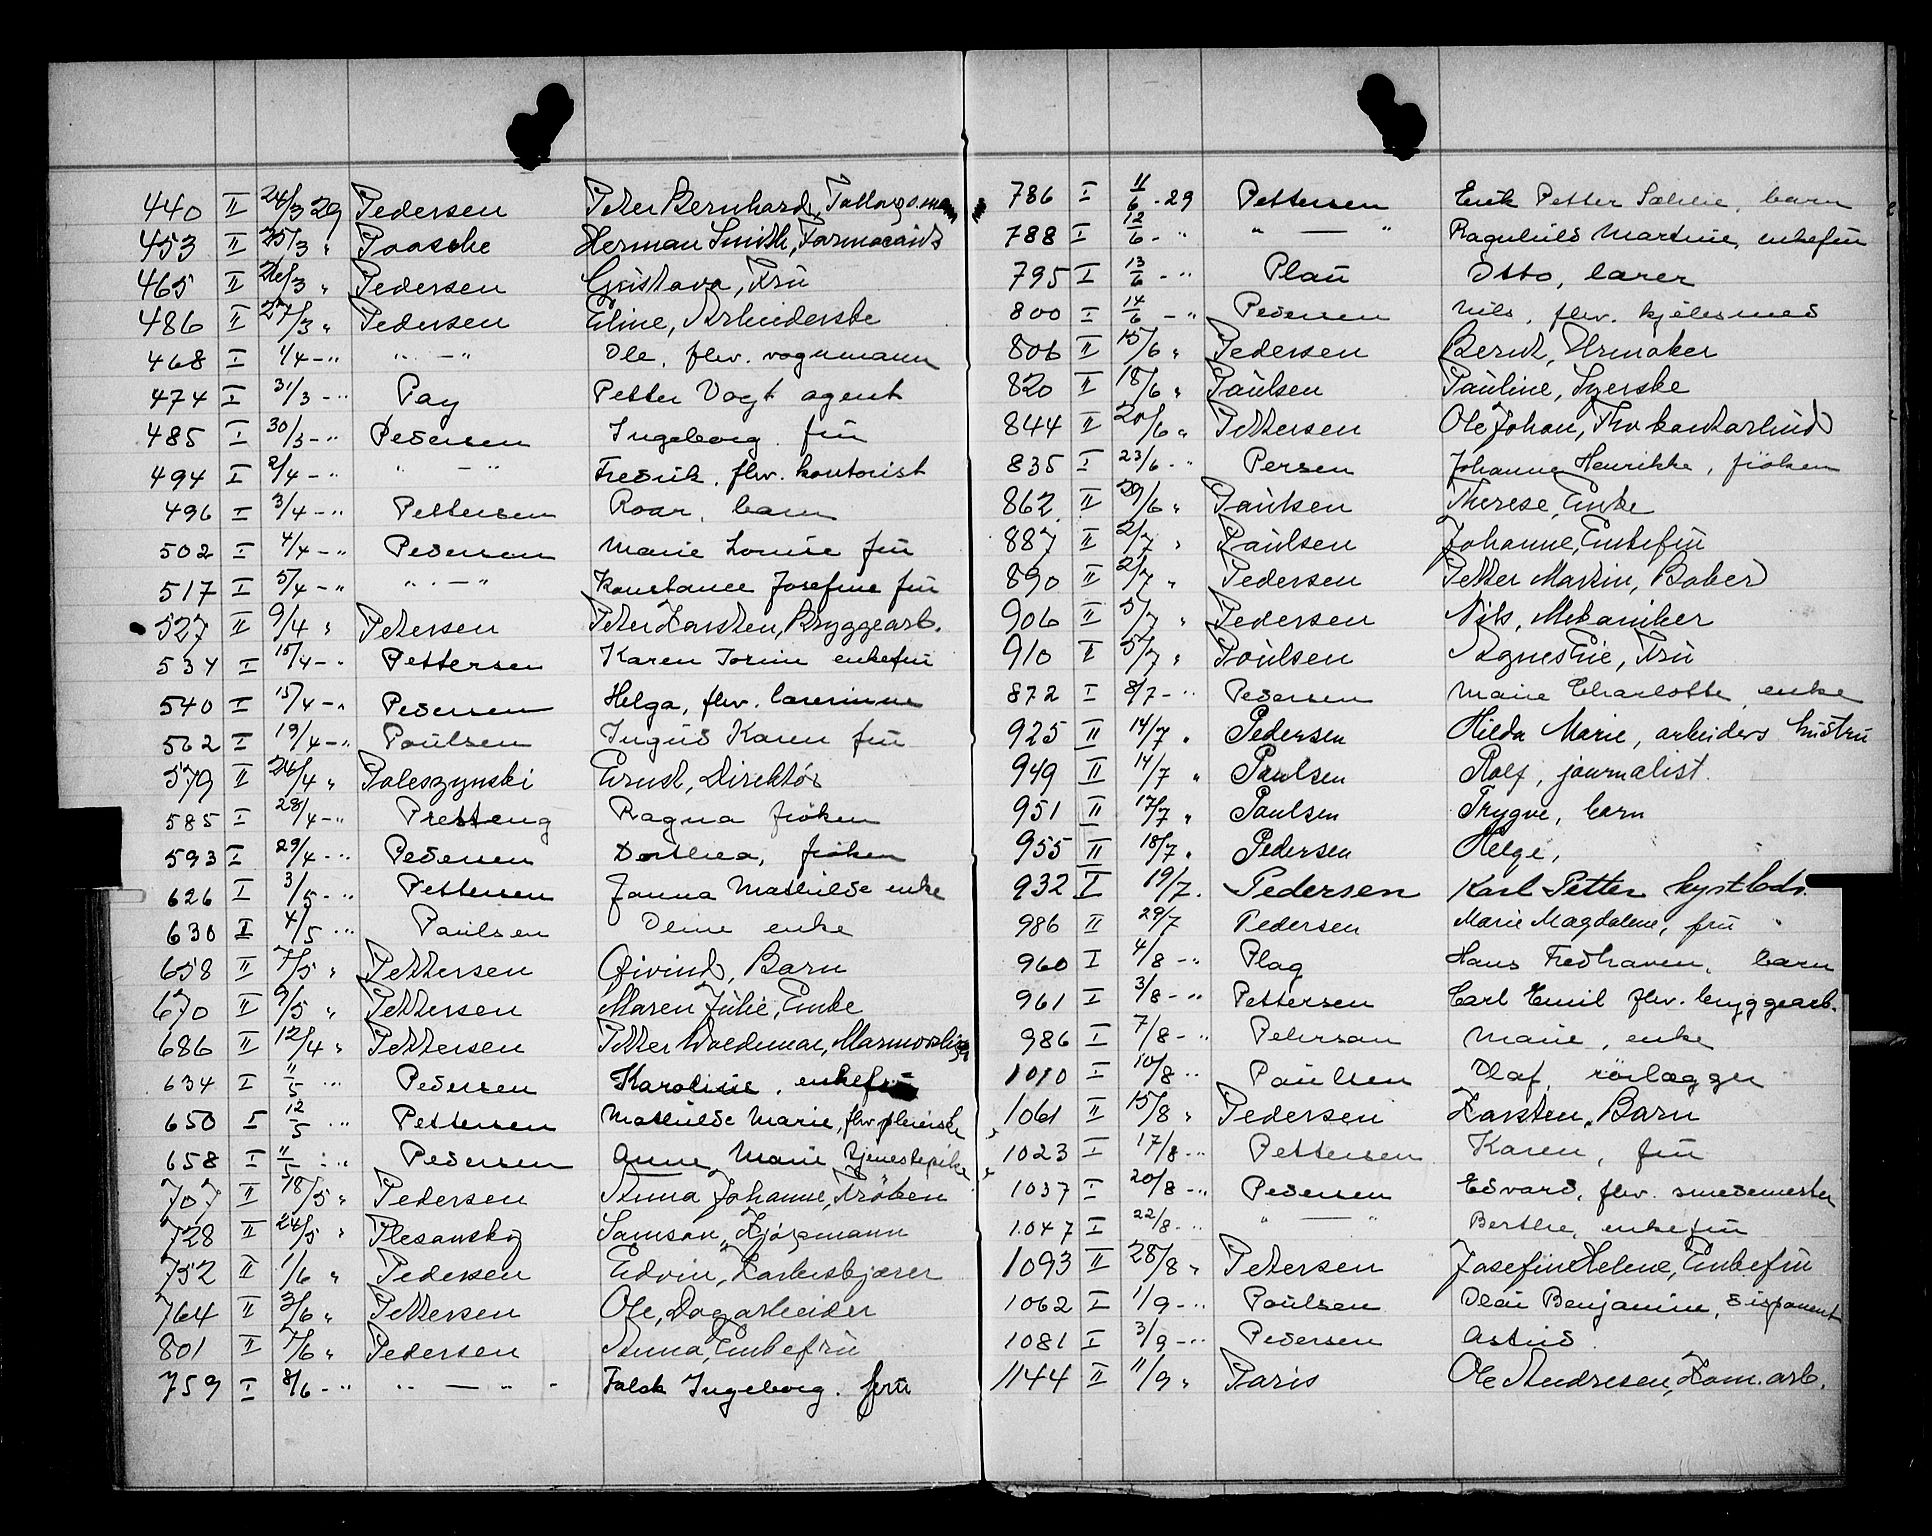 440 II 24/3 29 Pedersen Peter Bernhard,
453 II 25/3 " Paasche Herman Smith, Farmacøut
465 II 26/3 " Pedersen Gustava, Fru
486 II 27/3 " Pedersen Eline, Arbeiderske
468 I 1/4 - " " - " Ole, fhv. vognmann
474 I 31/3 - " Pay Petter Vogt agent
485 I 30/3 - " Pedersen Ingeborg. fru
494 I 2/4 - " " - " Fredrik. fhv. kontorist
496 I 3/4 - " Pettersen Roar, barn
502 I 4/4 - " Pedersen Marie Louise fru
517 I 5/4 - " " - " Konstance Josefine fru
527 II 9/4 " Petersen Peter Karsten, Bryggearb.
534 I 15/4 - " Pettersen Karen Jorine enkefru
540 I 15/4 - " Pedersen Helga, fhv. lærerinne
562 I 19/4 - " Paulsen Ingrid Karen fru
579 II 26/4 " Poleszynski Ernst, Direktør
585 I 28/4 - " Presteng Ragna frøken
593 I 29/4 - " Pedersen Dorthea, frøken
626 I 3/5 - " Pettersen Janna Mathilde enke
630 I 4/5 " Paulsen Oline enke
658 II 7/5 " Pettersen Øivind, Barn
670 II 9/5 " Pettersen Maren Julie, Enke
686 II 12/4 " Pettersen Petter Woldemar,
634 I 11/5 " Pedersen Karoline, enkefru
650 I 12/5 " Pettersen Mathilde Marie, fhv pleierske
658 I 11/5 - " Pedersen Anne Marie tjenestepike
707 II 18/5 " Pedersen Anna Johanne, Frøken
728 II 24/5 " Plesansky Samson, Kjøpmann
752 II 1/6 " Pedersen Edvin,
764 II 3/6 " Pettersen Ole, Dagarbeider
801 II 7/6 " Pedersen Anna, Enkefru
759 I 8/6 - " " — " - Falck Ingeborg. fru
786 I 11/6 - 29 Pettersen Erik Petter barn
788 I 12/6 - " " — " Ragnhild Martine, enkefru
795 I 13/6 - " Plau Otto, lærer
800 I 14/6 - " Pedersen Nils, fhv. kjelesmed
806 II 15/6 " Pedersen Bernt, Urmaker
820 II 18/6 " Paulsen Pauline, Syerske
844 II 20/6 " Pettersen Ole Johan, Fhv kontorbud
835 I 23/6 - " Persen Johanne Henrikke, frøken
862 II 29/6 " Paulsen Therese, Enke
887 II 2/7 " Paulsen Johanne, Enkefru
890 II 2/7 " Pedersen Petter Martin, Baker
906 II 5/7 " Pedersen Nils, Mekaniker
910 II 5/7 " Poulsen Agnethe, Fru
872 I 8/7 - " Pedersen Marie Charlotte, enke
925 II 14/7 " Pedersen Hilda Marie, arbeiders hustru
949 II 14/7 " Paulsen Rolf, journalist.
951 II 17/7 " Paulsen Trygve, barn
955 II 18/7 " Pedersen Helge,
932 I 19/7. Pedersen Karl Petter kystlods.
986 II 29/7 Pedersen Marie Magdalene, fru
960 I 4/8 - " Plag Hans Fredhaven, barn
961 I 3/8 - " Pettersen Carl Emil fhv. bryggearb.
986 I 7/8 - " Peterson Marie, enke
1010 I 10/8 " Paulsen Olaf, rørlegger
1061 II 15/8 " Pedersen Karsten, Barn
1023 I 17/8 - " Pettersen Karen, fru
1037 I 20/8 - " Pedersen Edvard, fhv. smedemester
1047 I 22/8 - " " — " Berthe, enkefru
1093 II 28/8 " Petersen Josefine Helene, Enkefru
1062 I 1/9 - " Paulsen Olai Benjamin, disponent
1081 I 3/9 - " Pedersen Astrid
1144 II 11/9 " Paris Ole Andresen, Kom. arb.